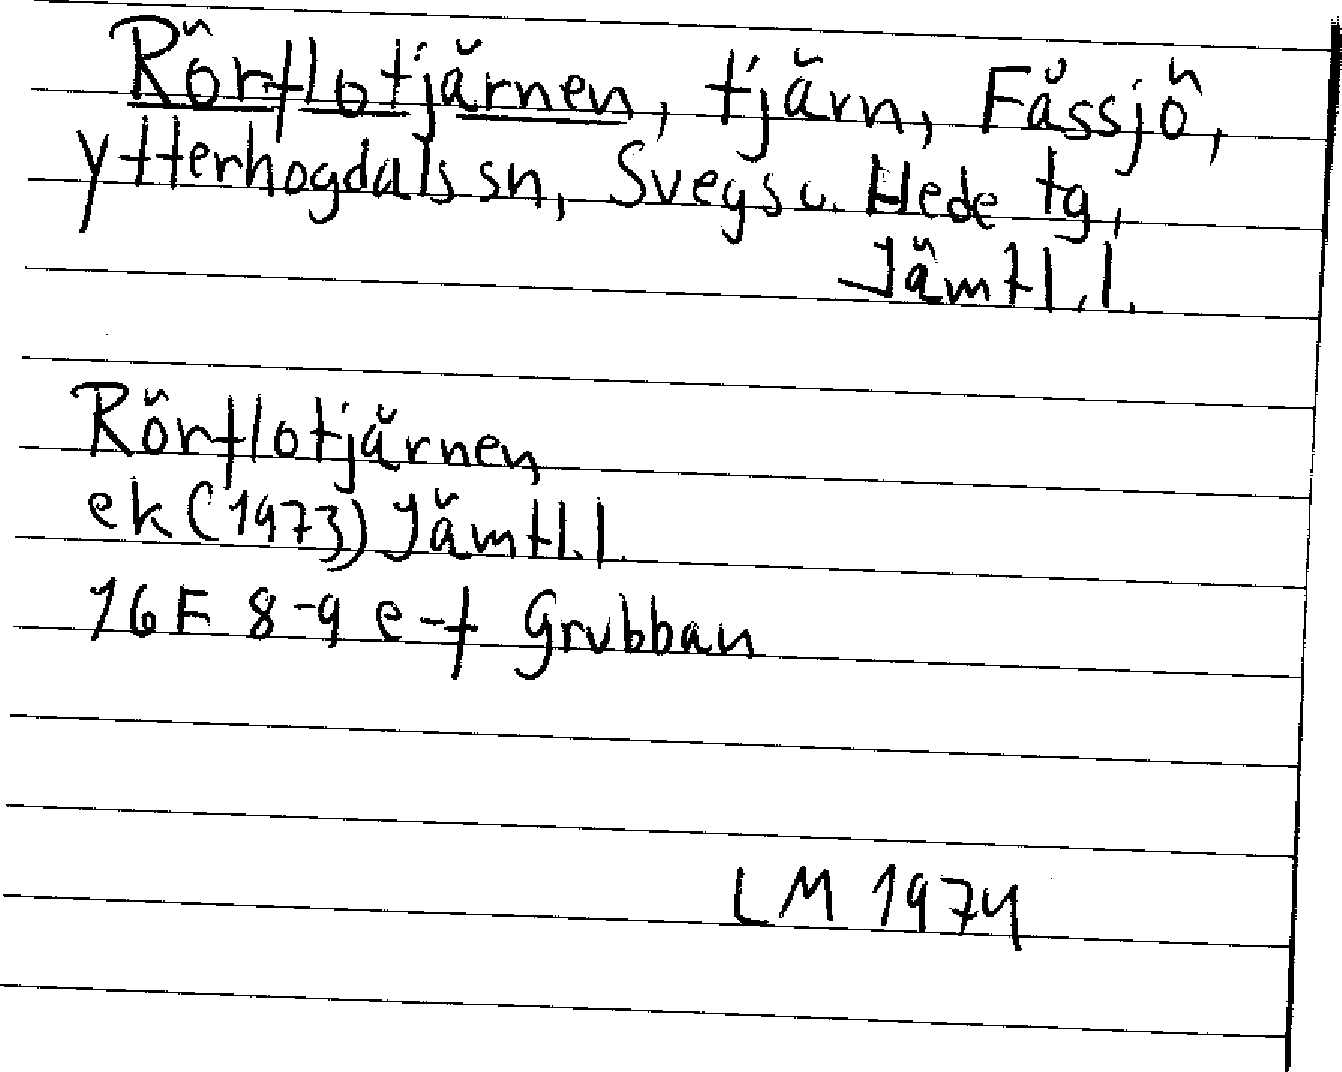 Rörflotjärnen, tjärn, Fåssjö,
Ytterhogdals sn, Svegs o. Hede tg,
Jämtl.l.
Rörflotjärnen
ek (1973) Jämtl.l.
16F 8-9 e-f Grubban
LM 1974